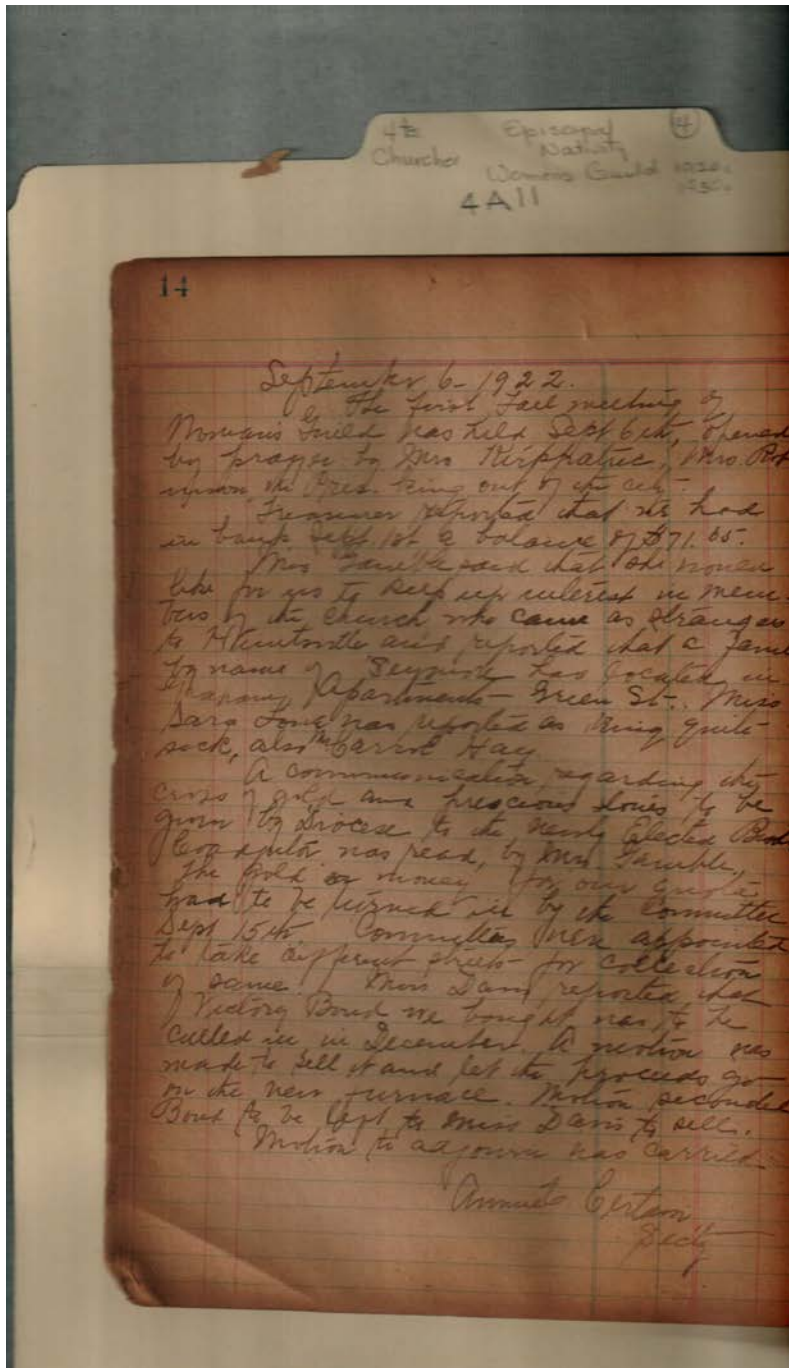 4th Episcopal ④
Churches Nativity
Womens Guild 1920s
1930s
4A11
14
September 6- 1922.
The first Fall meeting of
Woman's Guild was held Sept 6th, opened
by prayer by Mrs Kirppatric, Mrs Rob
inson the Pres. being out of the city-
Treasurer reported that we had
in bank Sept. 1st a balance of $71.65.
Mrs Gamble said that she would
like for us to keep up interest in mem-
bers of the church who came as strangers
to Huntsville and reported that a fami
by name of has located in
Apartments - Green St. Miss
Sara Lowe was reported as being quite
sick, also Mr Carrol Hay.
A communication, regarding the
cross of gold and prescious stones to be
given by Diocese to the newly Elected
Coadjutor was read, by Mrs Gamble.
The gold or money for our quota
had to be turned in by the committee
Sept 15th. Committees were appointed
to take different streets for collection
of same. Miss Davis reported that
Victory Bond we bought was to be
called in in December. A motion was
made to sell it and let the proceeds go
on the new furnace. Motion seconded
Bond to be left to Miss Davis to sell.
Motion to adjourn was carried.
Certain
Secty